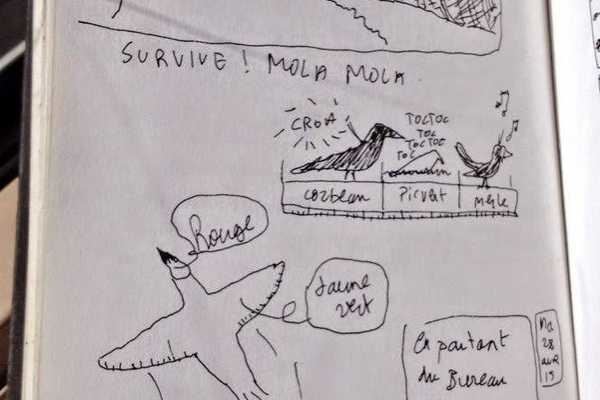 SURVIVE ! MOLA MOLA
CROA
TOCTOC
TOC
TOCTOC
TOC
corbeau
Picvert
merle
Rouge
Jaune
vert
En partant
du Bureau
Ma
28
avr
15